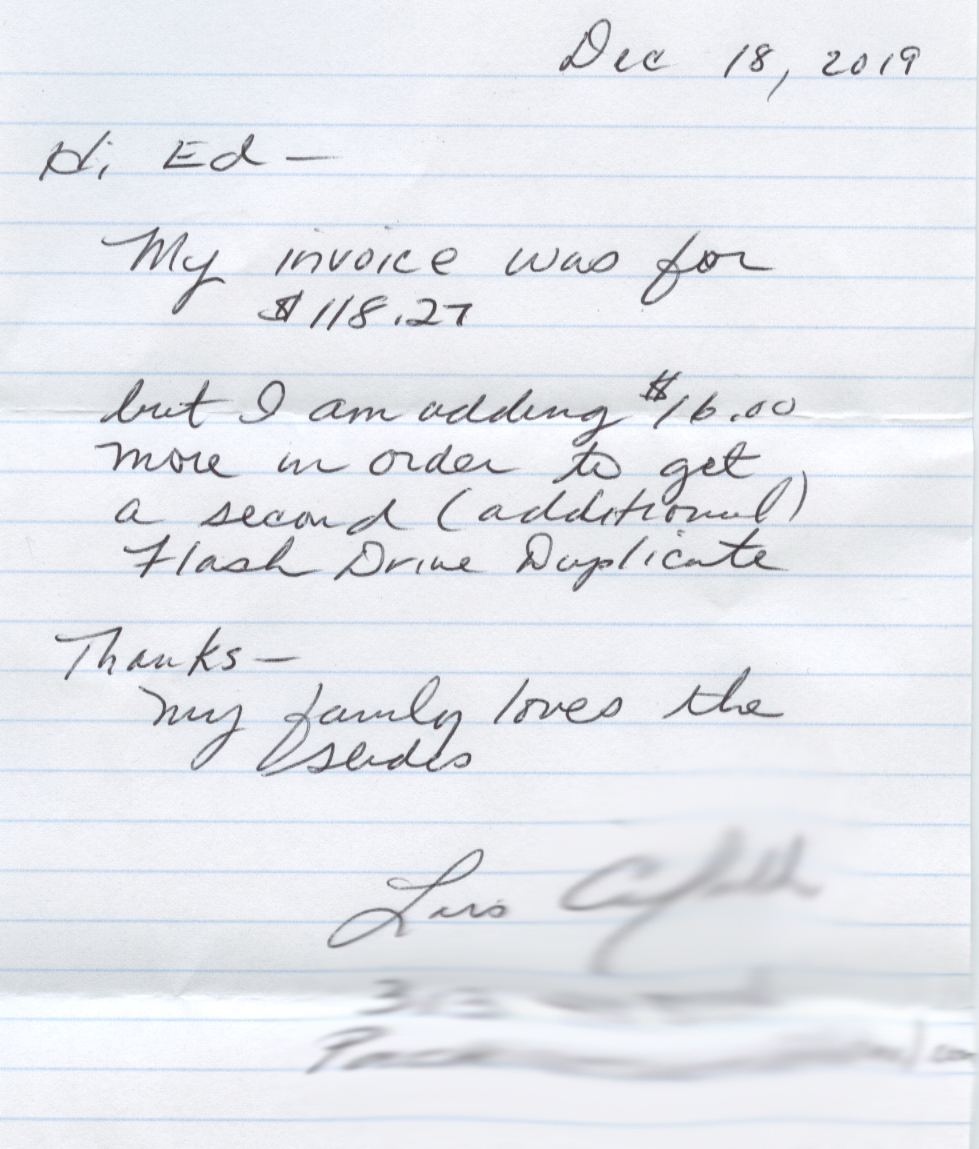 Dec 18, 2019
Hi Ed —
My invoice was for
$118.27
but I am adding $16.00
more in order to get
a second (additional)
Flash Drive Duplicate
Thanks —
my family loves the
slides